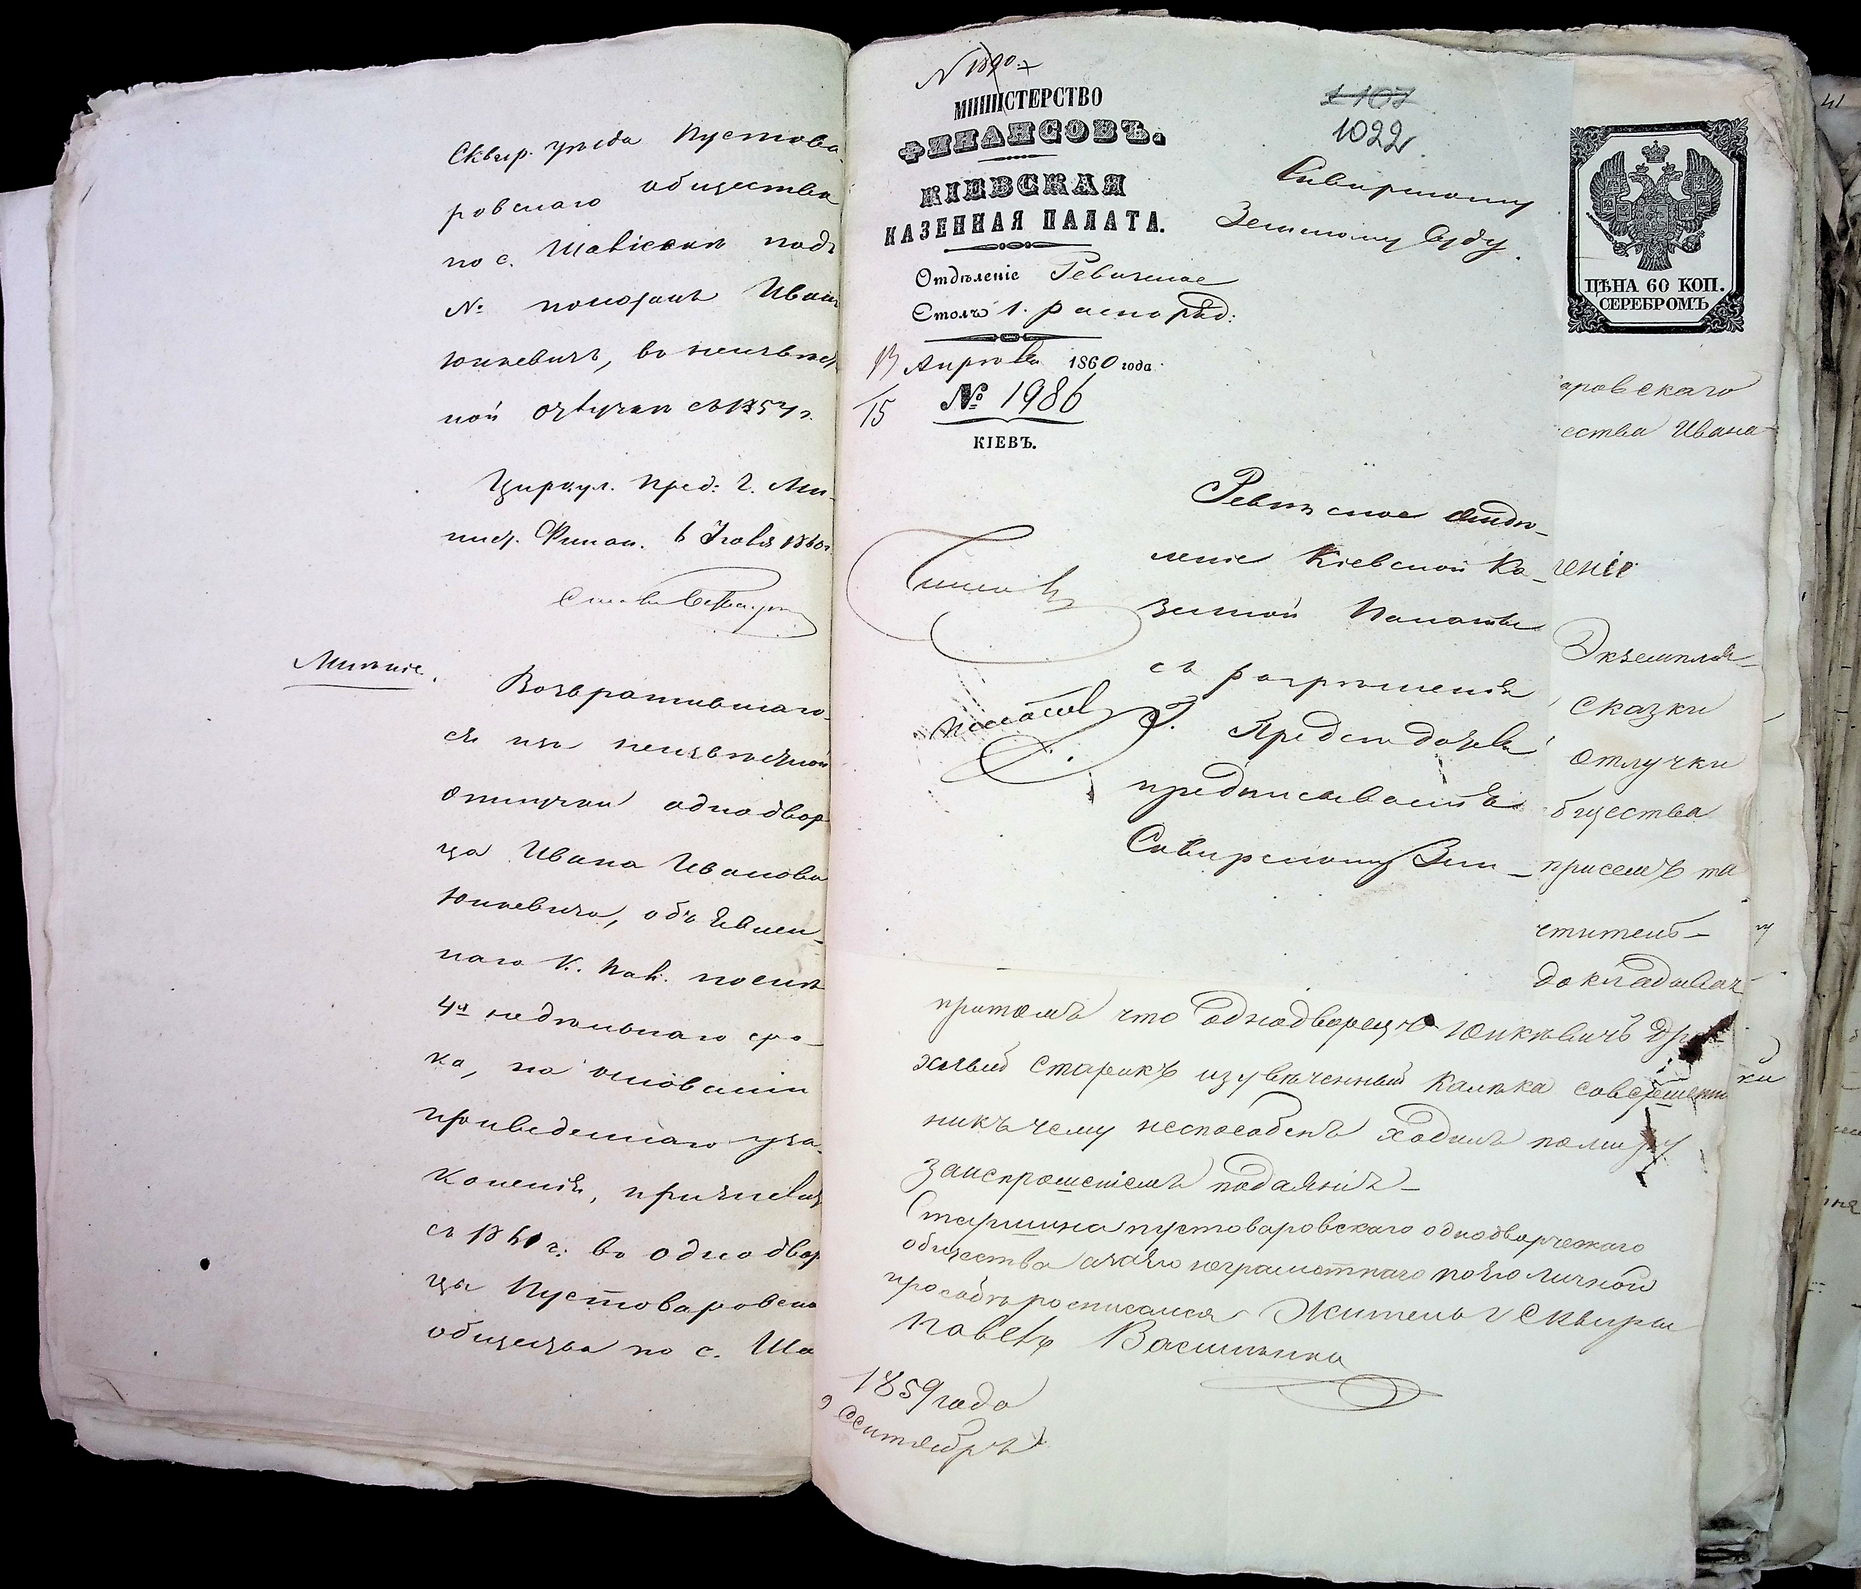 Сквир. уѣзда Пустова-
ровскаго общества
по с. подъ
№ показанъ Иванъ
Юнкевичъ, въ неизвѣст-
ной отлучкѣ съ 1857 г.
Циркул. пред: Г. Ми-
нист. Финан. 6 Іюля 1860 г.
Мнѣніе.
Возвратившаго-
ся изъ неизвѣстной
отлучки однодвор
ца Ивана Иванова
Юнкевича, объявлен-
наго К. Пал. послѣ
недѣльнаго сро-
ка, на основаніи
приведеннаго уза-
коненія, причислить
съ 1861 г: въ однодвор
цы Пустоваровска
общества по с. Ша
МИНИСТЕРСТВО
ФИНАНСОВЪ.
КІЕВСКАЯ
КАЗЕННАЯ ПАЛАТА.
Отдѣленіе Ревизское
Столъ 1. распоряд:
13 Апрѣля 1860 года
15
№ 1986
КІЕВЪ.
1107
1022
Сквирскому
Земскому Суду.
ЦѢНА 60 КОП.
СЕРЕБРОМЪ
аровскаго
ества Ивана
Ревизское отдѣ-
леніе Кіевской Ка-
зенной Палаты
съ разрѣшенія
Г. Предсѣдателя
предписываетъ
Сквирскому Зем-
Экземпля-
сказки
отлучки
бщества
присемъ
чтитель-
докладывая
притомъ что однодворецъ Юнкѣвичъ дря-
хлый старикъ изувѣченный калѣка совершенно
никъ чему неспособенъ ходилъ помиру
заиспрошеніемъ подаянія-
Старшина пустоваровскаго однодворческаго
общества неграмотнаго поего личной
прозьбѣ росписался Житель г Сквиры
Павелъ
1859 года
Сентября